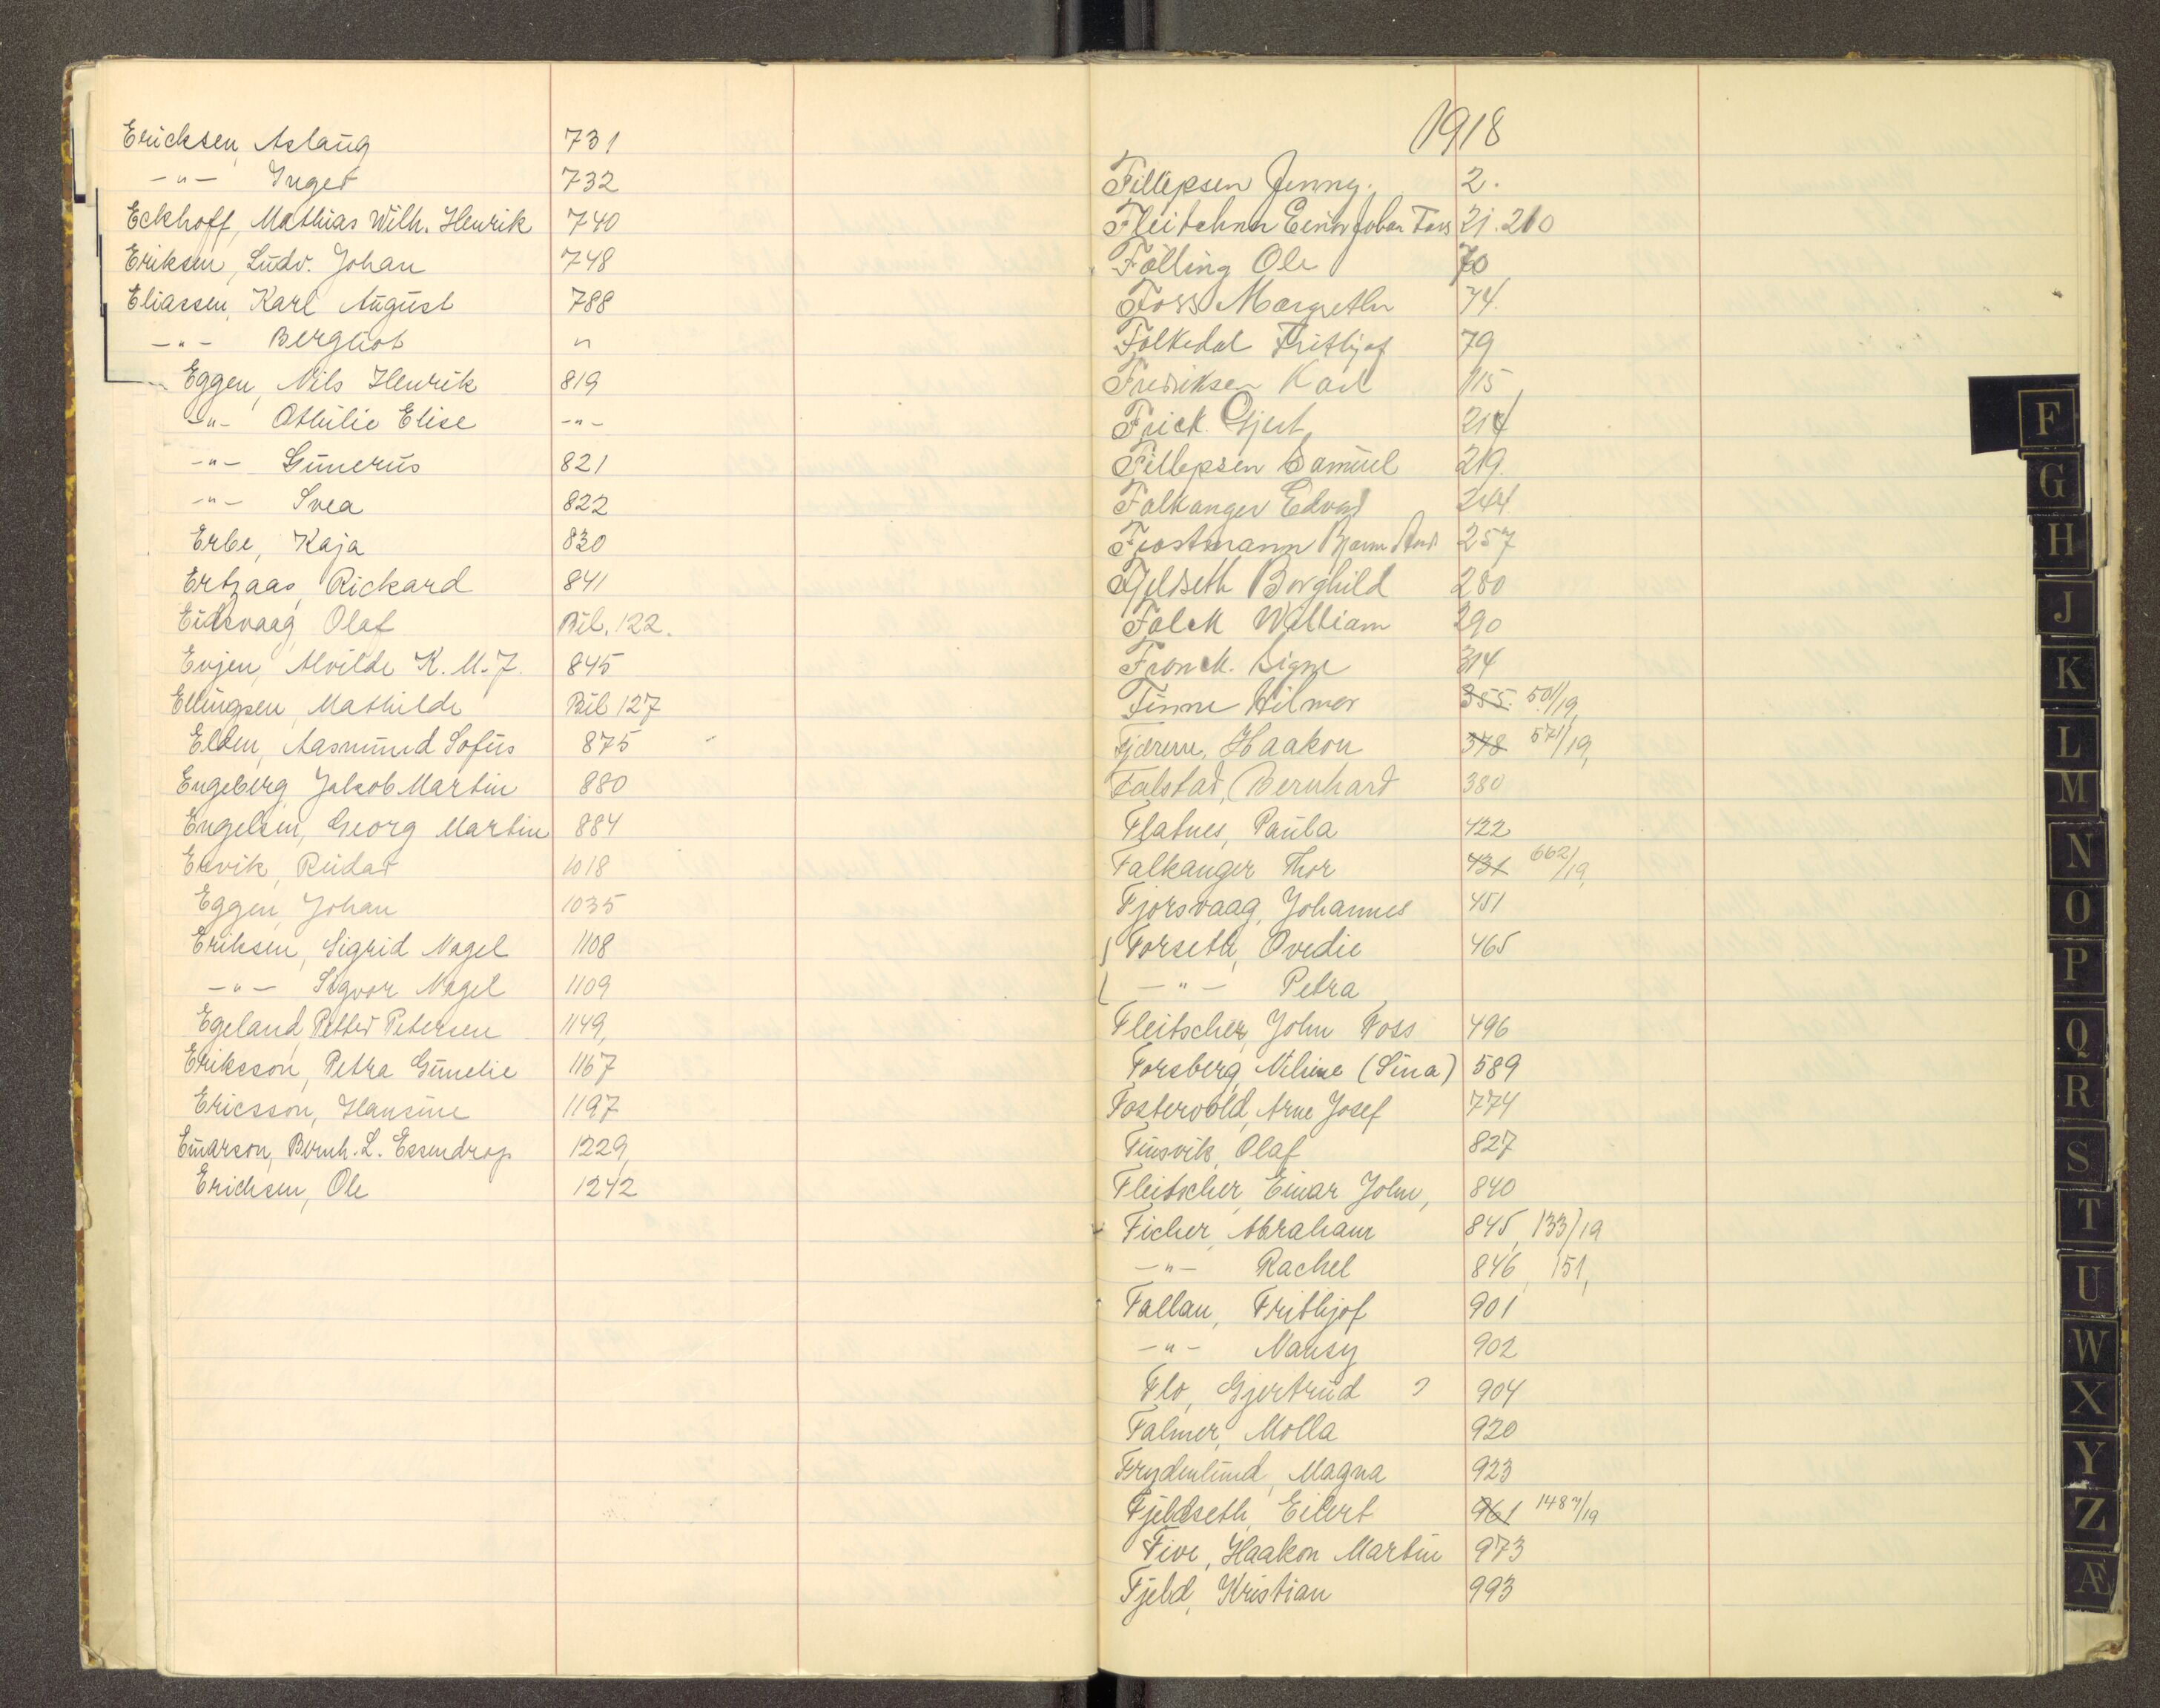 Ericksen, Aslaug 731
-"- Inger 732
Eckhoff, Mathias Wilh. Henrik 740
Eriksen, Ludv. Johan 748
Eliassen, Karl August 788
-"- Bergliot "
Eggen, Nils Henrik 819
-"- Othilie Elise -"-
-"- Gunerius 821
-"- Svea 822
Erbe, Kaja 830
Ertzaas, Rickard 841
Eidsvaag, Olaf Bil. 122.
Evjen, Alvilde K. M. J. 845
Ellingsen, Mathilde Bil 127
Elden, Aasmund Sofus 875
Engeberg, Jakob Martin 880
Engelsen, Georg Martin 884
Ervik, Reidar 1018
Eggen, Johan 1035
Eriksen, Sigrid Nagel 1108
-"- Sigvor Nagel 1109
Egeland, Petter Petersen 1149,
Eriksson, Petra Gunelie 1167
Ericsson, Hansine 1197
Einarson, Bernh. L. Essendrop 1229,
Erichsen, Ole 1242
1918
Fillepsen Jenny. 2.
Fleitcher Einar Johan Foss 21. 210
Folling Ole 70
Foss Margrethe 74.
Folkedal Frithjof 79
Fredriksen Karl 115
Frick. Gjert 214
Fillepsen Samuel 219.
Falkanger Edvard 244
Frostmann Bjarne 257
Fjeldseth Borghild 280
Falck William 290
Fronck. Signe 314
Finne Hilmar 355. 501/19,
Fjærem, Haakon 378 571/19,
Falstad, Bernhard 380
Flatnes, Paula 422
Falkanger Thor 431 662/19,
Fjorsvaag, Johannes 451
Forseth, Ovedie 465
-"- Petra
Fleitscher, John Foss 496
Forsberg, Nilsine (Sina) 589
Fostervold, Arne Josef 774
Finsvik, Olaf 827
Fleitscher, Einar John, 840
Ficher, Abraham 845, 133/19
-"- Rachel 846, 151,
Fallan, Frithjof 901
-"- Nansy 902
Flo, Gjertrud ? 904
Falmer, Molla 920
Frydenlund, Magna 923
Fjeldseth, Eilert 961 1487/19
Five, Haakon Martin 973
Fjeld, Kristian 993
F
G
H
J
K
L
M
N
O
P
Q
R
S
T
U
W
X
Y
Z
Æ